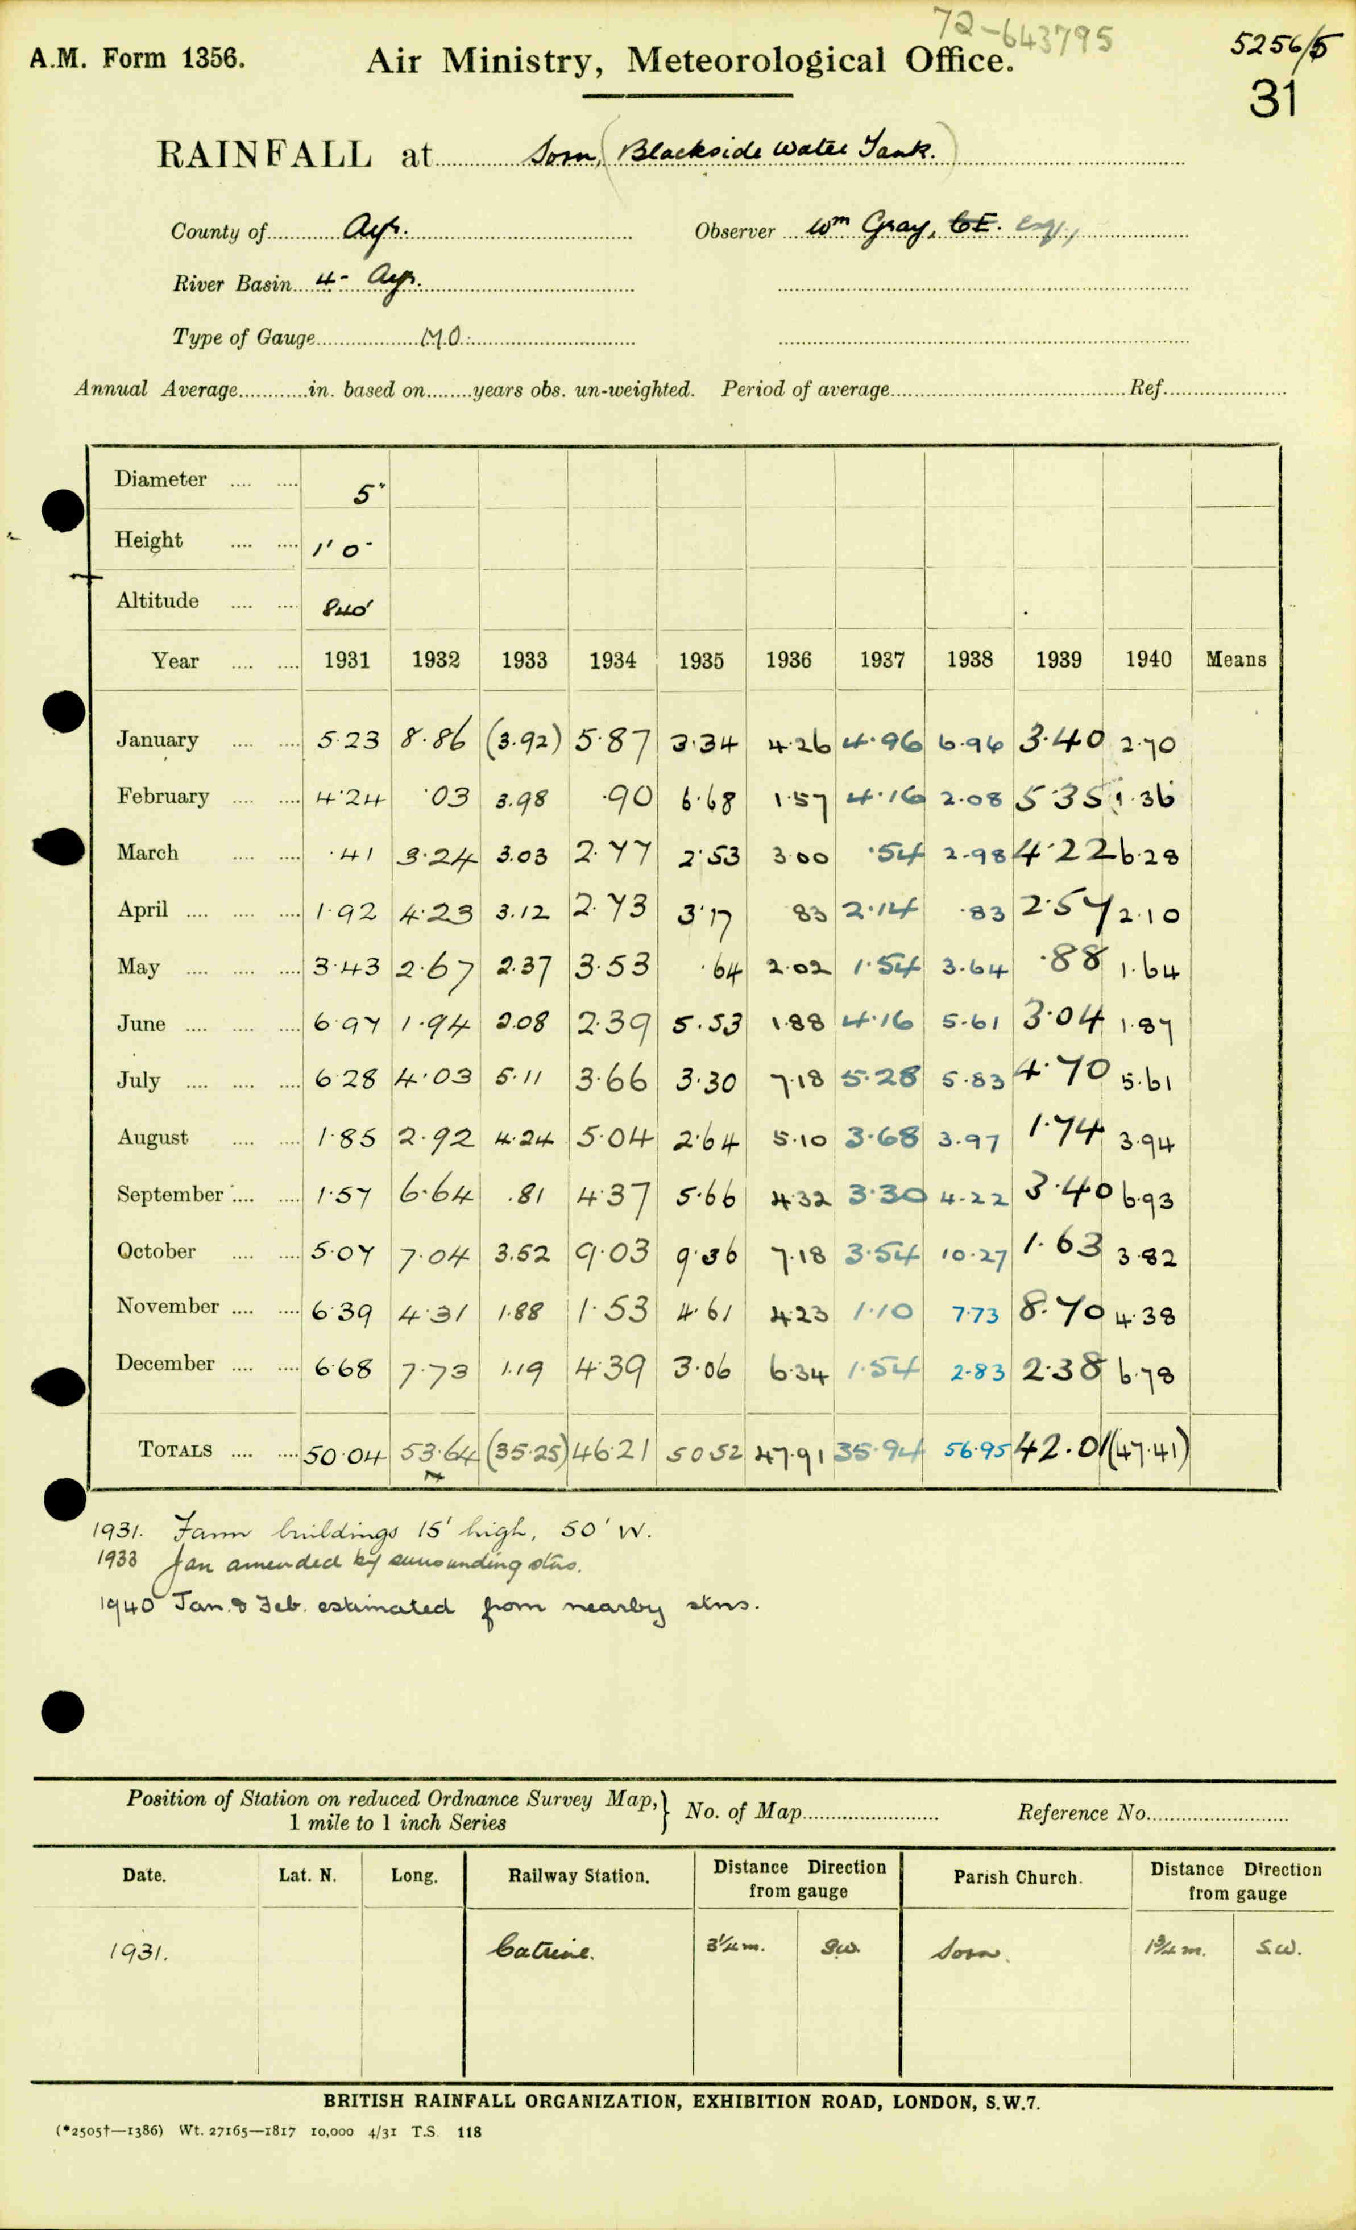 72-643795
5256/5
A.M. Form 1356. Air Ministry, Meteorological Office.
31
RAINFALL at Sorn, (Blackside Water Tank.)
County of Ayr. Observer Wm Gray, C.E. Esq.,
River Basin 4- Ayr.
Type of Gauge M.O.
Annual Average............in. based on........years obs. un-weighted. Period of average........................................Ref.....................
Diameter 5"
Height 1' 0"
Altitude 840'
Year 1931 1932 1933 1934 1935 1936 1937 1938 1939 1940 Means
January 5.23 8.86 (3.92) 5.87 3.34 4.26 4.96 6.96 3.40 2.70
February 4.24 .03 3.98 .90 6.68 1.57 4.16 2.08 5.35 1.36
March .41 3.24 3.03 2.77 2.53 3.00 .54 2.98 4.22 6.28
April 1.92 4.23 3.12 2.73 3.17 83 2.14 .83 2.57 2.10
May 3.43 2.67 2.37 3.53 .64 2.02 1.54 3.64 .88 1.64
June 6.97 1.94 2.08 2.39 5.53 1.88 4.16 5.61 3.04 1.87
July 6.28 4.03 5.11 3.66 3.30 7.18 5.28 5.83 4.70 5.61
August 1.85 2.92 4.24 5.04 2.64 5.10 3.68 3.97 1.74 3.94
September 1.57 6.64 .81 4.37 5.66 4.32 3.30 4.22 3.40 6.93
October 5.07 7.04 3.52 9.03 9.36 7.18 3.54 10.27 1.63 3.82
November 6.39 4.31 1.88 1.53 4.61 4.23 1.10 7.73 8.70 4.38
December 6.68 7.73 1.19 4.39 3.06 6.34 1.54 2.83 2.38 6.78
TOTALS 50.04 53.64 (35.25) 46.21 50.52 47.91 35.94 56.95 42.01 (47.41)
1931. Farm buildings 15' high, 50' W.
1933 Jan amended by surrounding stns.
1940 Jan. & Feb. estimated from nearby stns.
Position of Station on reduced Ordnance Survey Map, 1 mile to 1 inch Series } No. of Map........................ Reference No.........................
Date. Lat. N. Long. Railway Station. Distance Direction from gauge Parish Church. Distance Direction from gauge
1931. Catrine. 3¼m. SW. Sorn. 1¾m. S.W.
BRITISH RAINFALL ORGANIZATION, EXHIBITION ROAD, LONDON, S.W.7.
(*2505†—1386) Wt. 27165—1817 10,000 4/31 T.S. 118